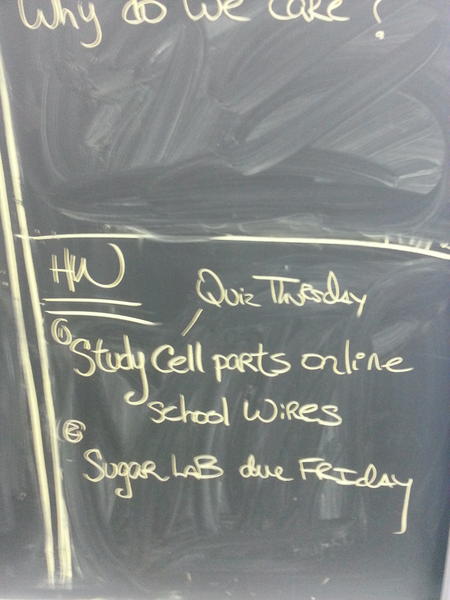 Why do we care?
HW
Quiz Tuesday
① Study Cell parts online
School Wires
② Sugar LAB due FRIday